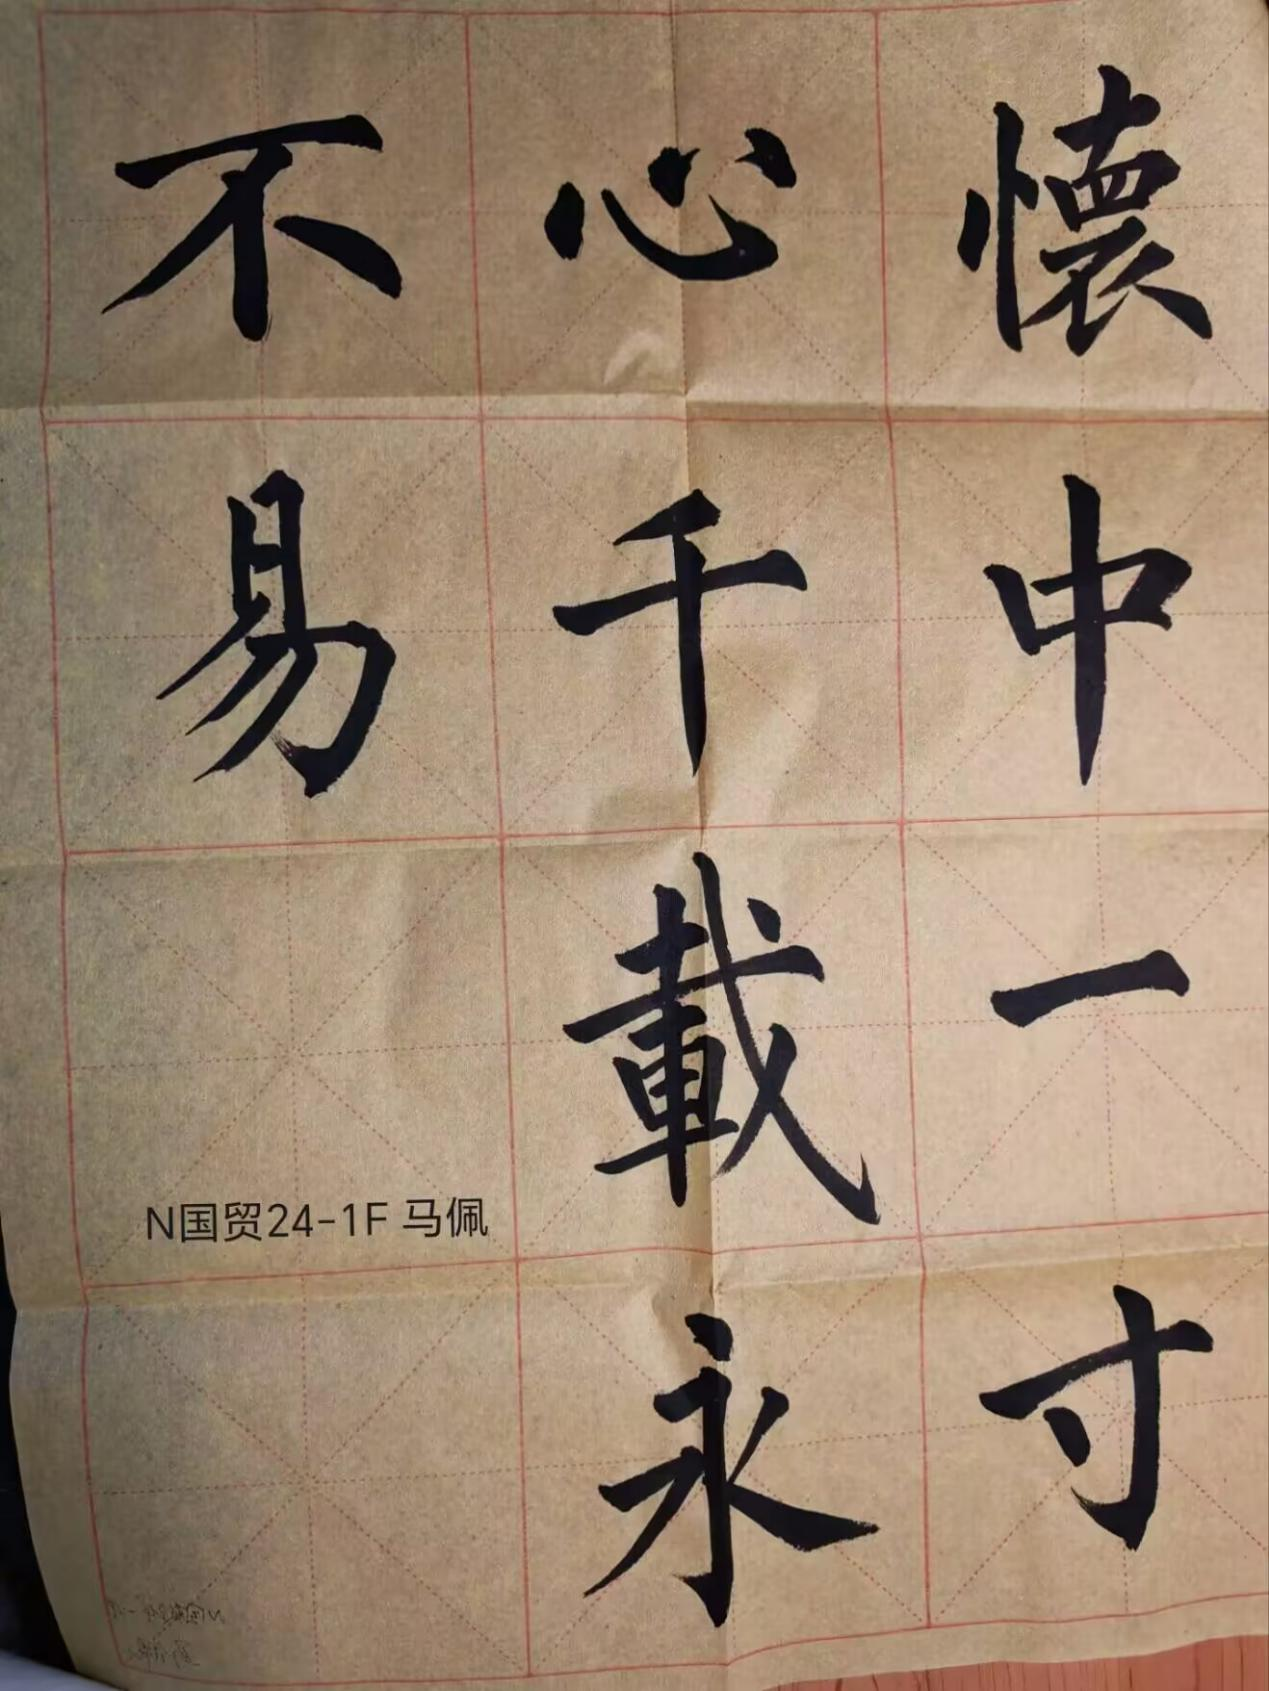 懷中一寸
心千載永
不易
N国贸24-1F 马佩